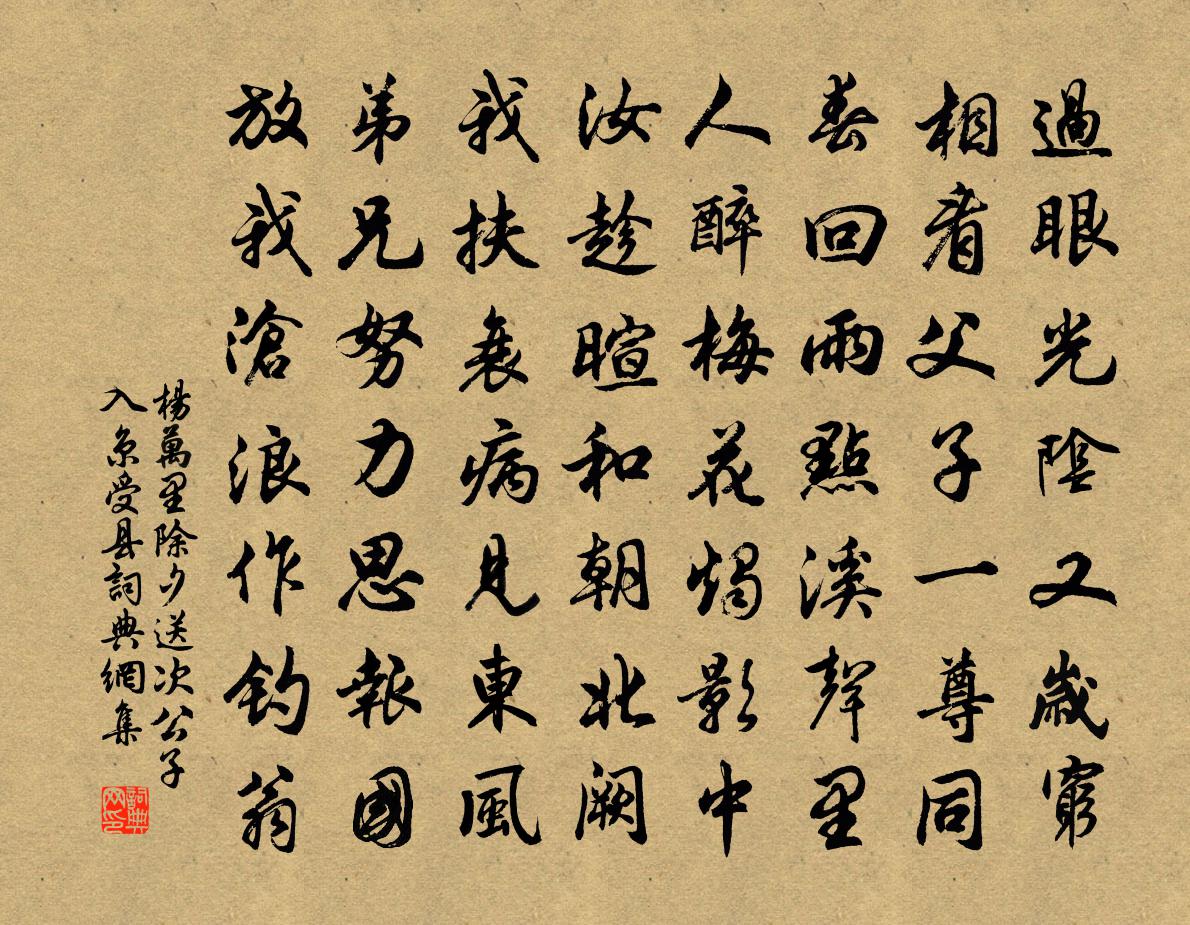 過眼光陰又歲窮
相看父子一尊同
春回雨點溪聲里
人醉梅花燭影中
汝趁暄和朝北闕
我扶衰病見東風
弟兄努力思報國
放我滄浪作釣翁
楊萬里除夕送次公子
入京受县詞典網集
詞典
网印